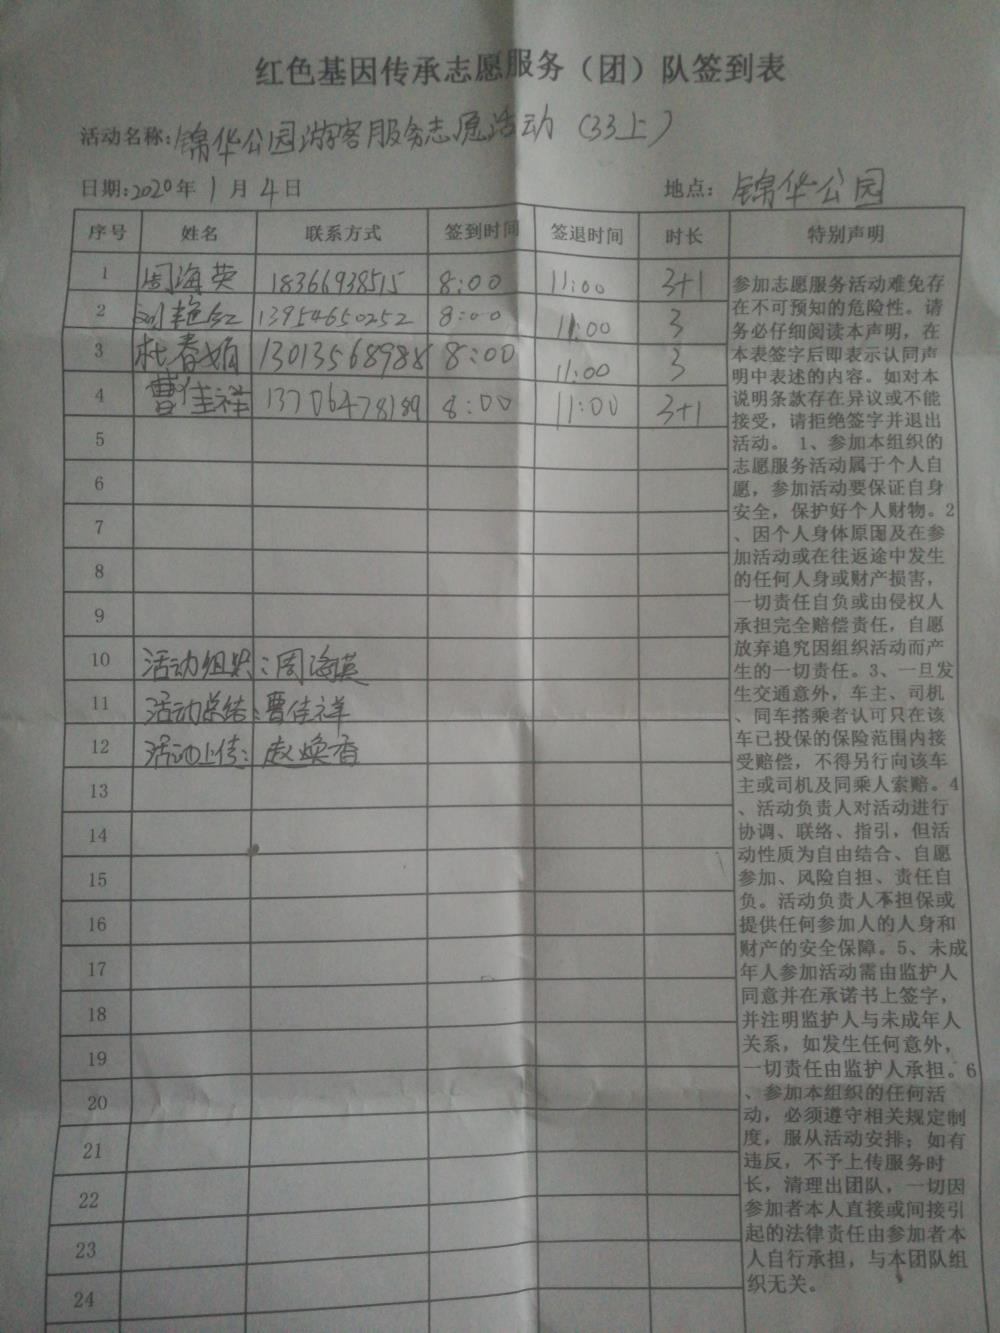 红色基因传承志愿服务（团）队签到表
活动名称：锦华公园游客服务志愿活动（33上）
日期：2020年1月4日 地点：锦华公园
序号 姓名 联系方式 签到时间 签退时间 时长 特别声明
1 周海英 18366938515 8:00 11:00 3+1
2 刘艳红 13954650252 8:00 11:00 3
3 杜春娟 13013568988 8:00 11:00 3
4 曹佳祥 13706478189 8:00 11:00 3+1
5
6
7
8
9
10 活动组织：周海英
11 活动总结：曹佳祥
12 活动上传：赵焕香
13
14
15
16
17
18
19
20
21
22
23
24
参加志愿服务活动难免存
在不可预知的危险性。请
务必仔细阅读本声明，在
本表签字后即表示认同声
明中表述的内容。如对本
说明条款存在异议或不能
接受，请拒绝签字并退出
活动。 1、参加本组织的
志愿服务活动属于个人自
愿，参加活动要保证自身
安全，保护好个人财物。2
、因个人身体原因及在参
加活动或在往返途中发生
的任何人身或财产损害，
一切责任自负或由侵权人
承担完全赔偿责任，自愿
放弃追究因组织活动而产
生的一切责任。3、一旦发
生交通意外，车主、司机
、同车搭乘者认可只在该
车已投保的保险范围内接
受赔偿，不得另行向该车
主或司机及同乘人索赔。4
、活动负责人对活动进行
协调、联络、指引，但活
动性质为自由结合、自愿
参加、风险自担、责任自
负。活动负责人不担保或
提供任何参加人的人身和
财产的安全保障。5、未成
年人参加活动需由监护人
同意并在承诺书上签字，
并注明监护人与未成年人
关系，如发生任何意外，
一切责任由监护人承担。6
、参加本组织的任何活
动，必须遵守相关规定制
度，服从活动安排；如有
违反，不予上传服务时
长，清理出团队，一切因
参加者本人直接或间接引
起的法律责任由参加者本
人自行承担，与本团队组
织无关。